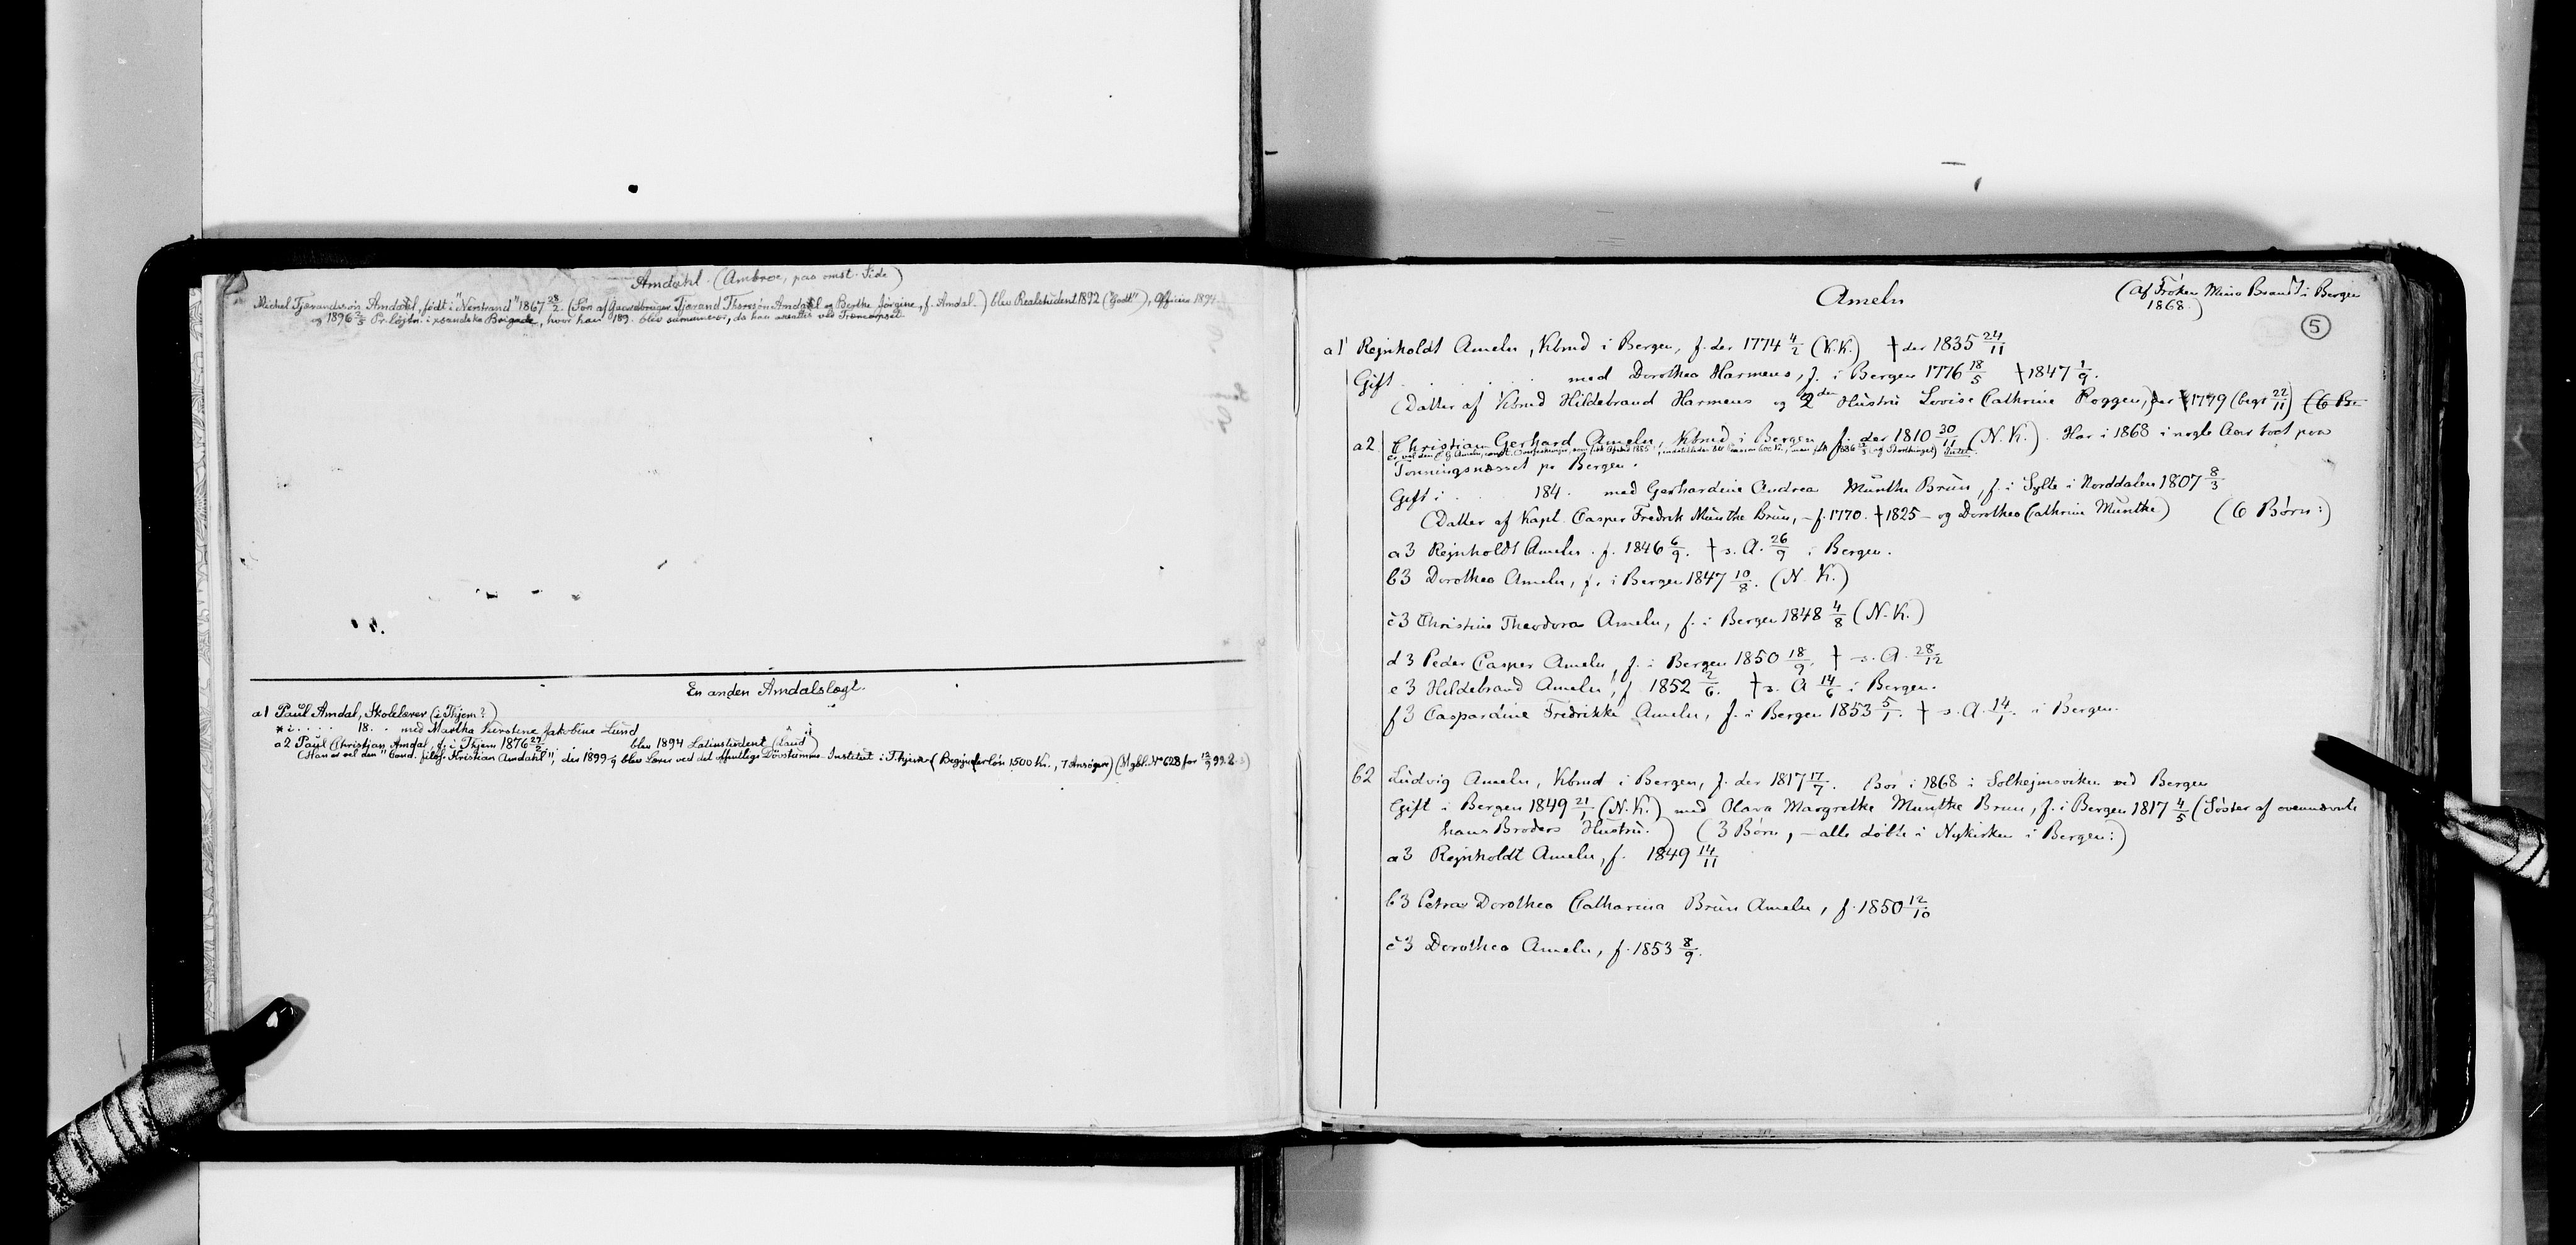 Amdahl. (Ambroe, paa omst. Side)
Michel Tjærandssøn Amdahl, født i "Nerstrand" 1867 28/2. (Søn af Gaardbruger Tjærand Thorsøn Amdahl og Berthe Jørgine, f. Amdal.) blev Realstudent 1892 ("Godt"), Officier 1894
og 1896 2/5 Pr. løjtn. i xsandske Brigade, hvor han 189. blev nummerer, da han ansattes ved Træncorpset.
En anden Amdalslægt.
a1 Paul Amdal, Skolelærer (i Thjem?)
* i . . . . 18. . med Martha Kirstine Jakobine Lund
a2 Paul Christian Amdal, f. i Thjem 1876 27/2. blev 1894 Latinstudent (Laud)
(Han er vel den "Cand. filos. Kristian Amdahl", der 1899 9 blev Lærer ved det offentlige Døvstumme-Institut i Thjem (Begynderløn 1500 Kr., 7 Ansøgere) (Mgbl. No 628 for 13/9 99. 2. s)
Ameln
(Af Frøken Mina Brandt i Bergen
1868.)
5
a1 Rejnholdt Ameln, Kbmd i Bergen, f. der 1774 4/2 (K.K.) † der 1835 24/11
Gift . . . . med Dorothea Harmens, f. i Bergen 1776 18/5 † 1847 1/9.
(Datter af Kbmd Hildebrand Harmens og 2den Hustru Lovise Cathrine Roggen, der † 1779 (begr 22/11) (6 Bø
a2 Christian Gerhard Ameln, Kbmd i Bergen f. der 1810 30/11 (N.K.). Har i 1868 i nogle Aar boet paa
Tonningsnæsset pr Bergen.
Gift i . . 184. med Gerhardine Andrea Munthe Brun, f. i Sylte i Norddalen 1807 8/3
(Datter af Kapt. Casper Fredrik Munthe Brun, – f. 1770. † 1825 – og Dorothea Cathrine Munthe) (6 Børn:)
a3 Rejnholdt Ameln. f. 1846 6/9. † s. A. 26/9 i Bergen.
b3 Dorothea Ameln, f. i Bergen 1847 10/8. (N. K.)
c3 Christine Theodora Ameln, f. i Bergen 1848 4/8 (N.K.)
d3 Peder Casper Ameln, f. i Bergen 1850 18/9. † s. A. 28/12
e3 Hildebrand Ameln, f. 1852 2/6. † s. A 14/6 i Bergen.
f3 Caspardine Fredrikke Ameln, f. i Bergen 1853 5/1. † s. A. 14/1. i Bergen.
b2 Ludvig Ameln, Kbmd i Bergen, f. der 1817 17/7. Bor i 1868 i Solhejmsviken ved Bergen
Gift i Bergen 1849 21/1 (N.K.) med Olava Margrethe Munthe Brun, f. i Bergen 1817 4/5 (Søster af ovennævnte
hans Broders Hustru.) (3 Børn, – alle døbte i Nykirken i Bergen:)
a3 Rejnholdt Ameln, f. 1849 14/11
b3 Petra Dorothea Catharina Brun Ameln, f. 1850 12/10
c3 Dorothea Ameln, f. 1853 8/9.